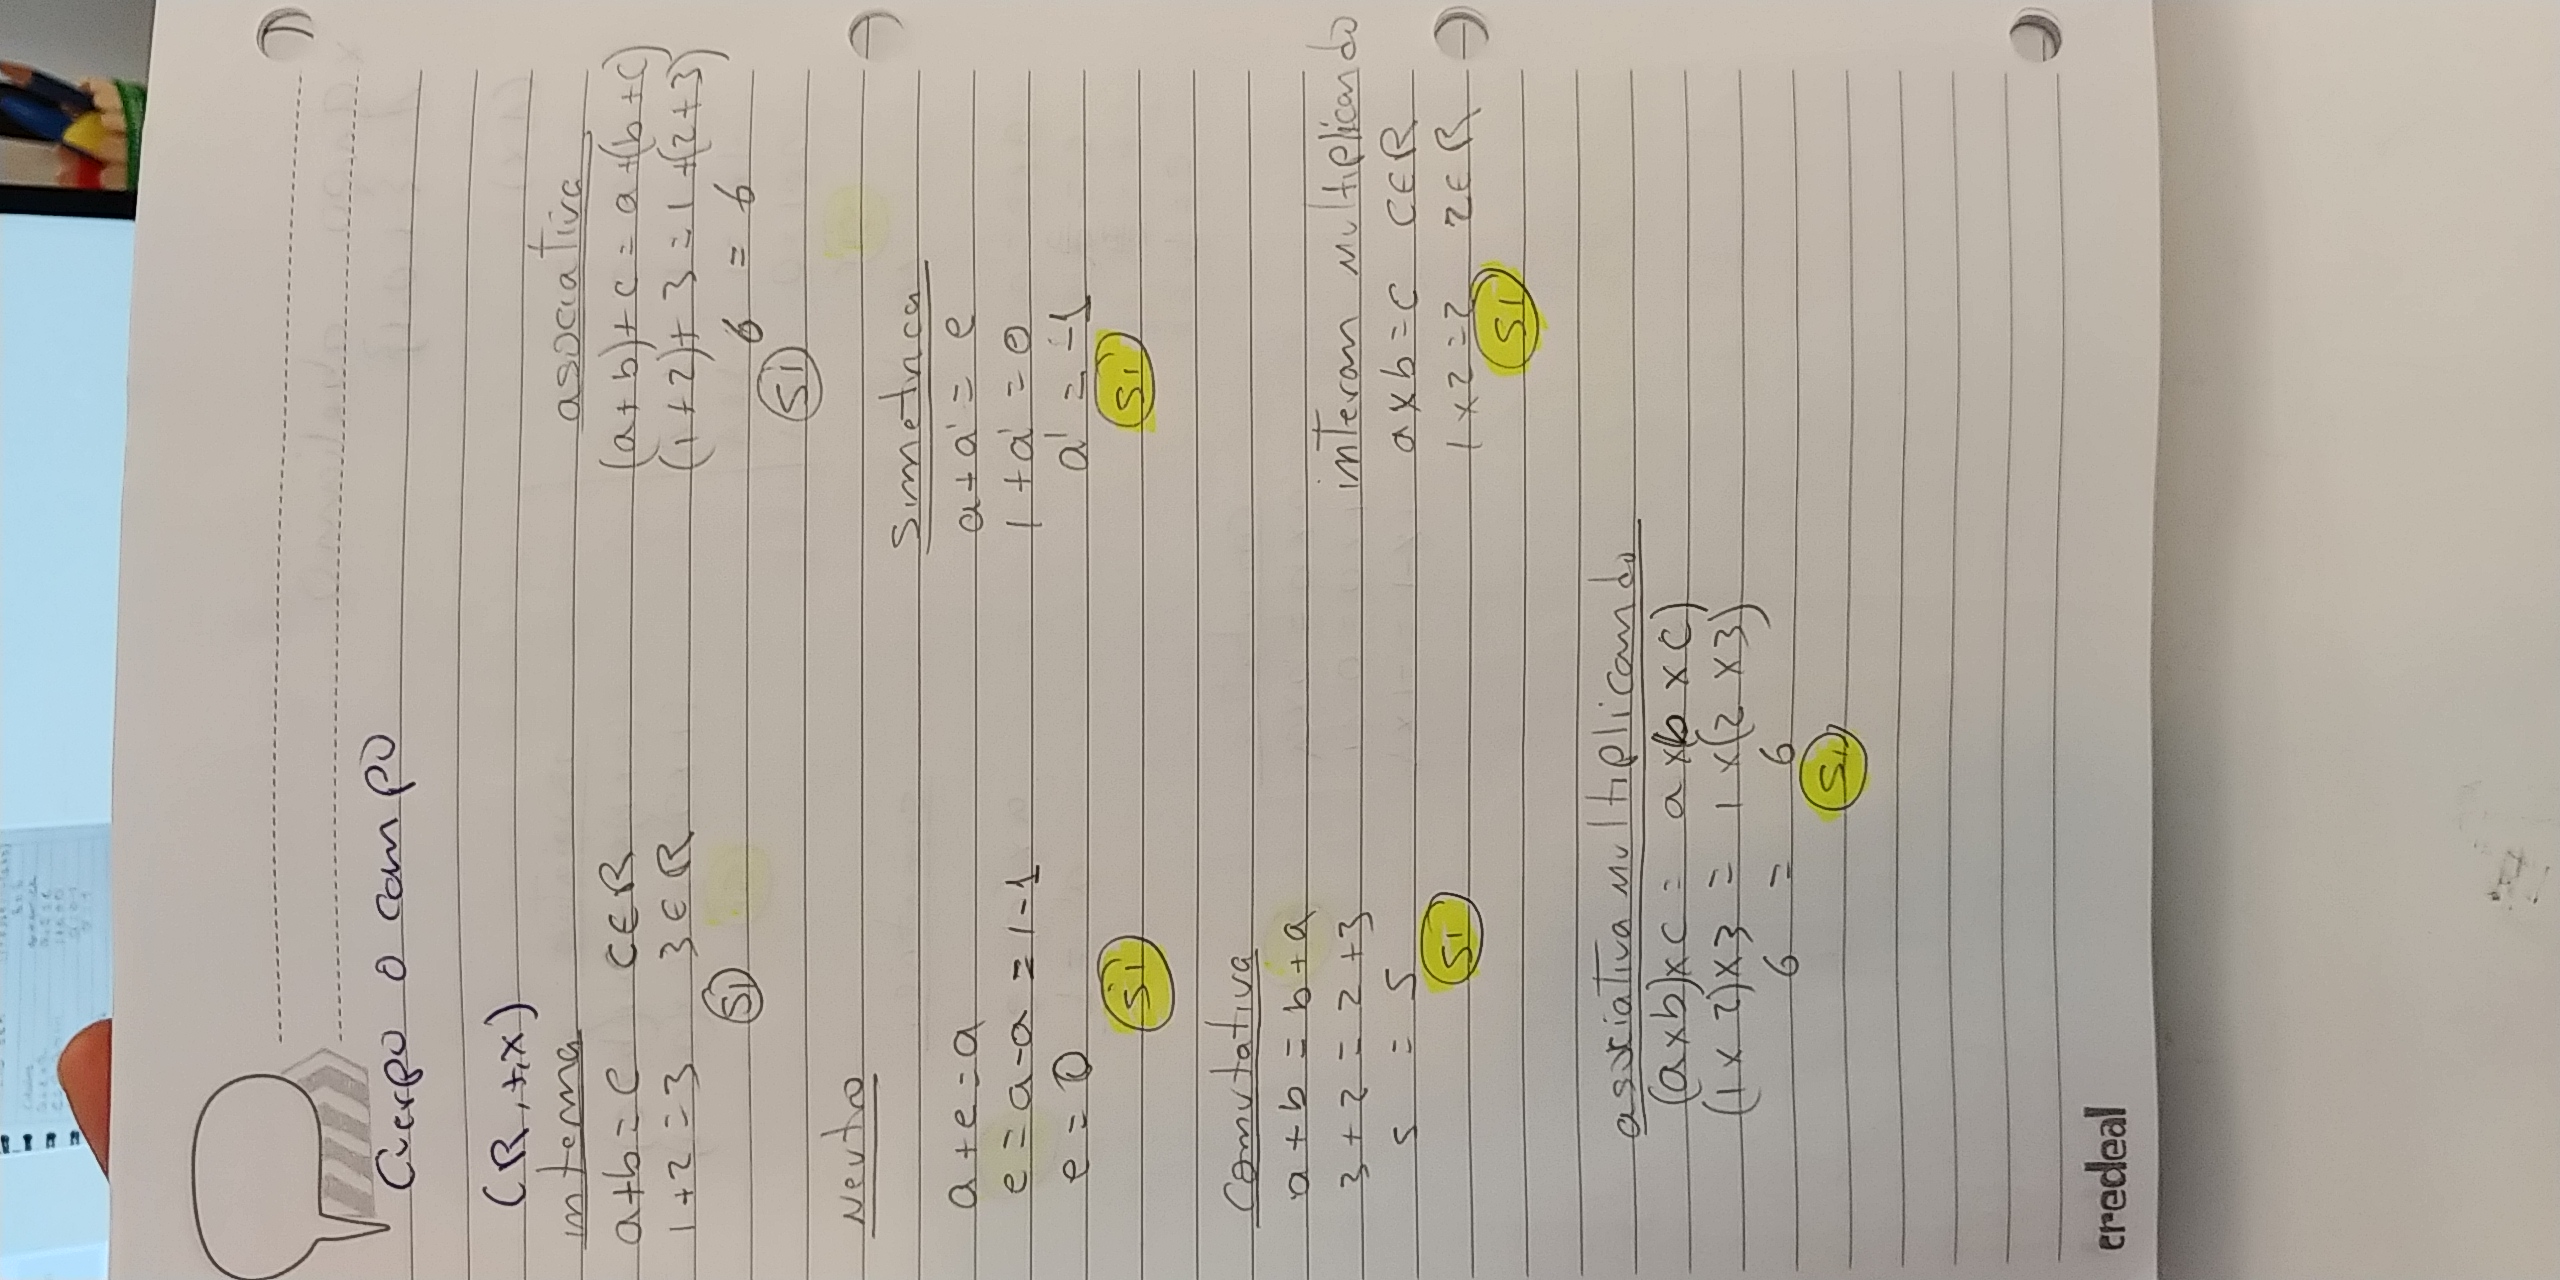 Cuerpo o campo
(R,+,x)
interna
a+b=c c∈R
1+2=3 3∈R
Si
asociativa
(a+b)+c=a+(b+c)
(1+2)+3=1+(2+3)
6 = 6
Si
Neutro
a+e=a
e=a-a=1-1
e=0
Si
Simetrica
a+a'=e
1+a'=0
a'=-1
Si
Comutativa
a+b=b+a
3+2=2+3
5 = 5
Si
interan Multiplicando
axb=c c∈R
1x2=2 2∈R
Si
asociativa Multiplicando
(axb)xc = ax(bxc)
(1x2)x3 = 1x(2x3)
6 = 6
Si
credeal